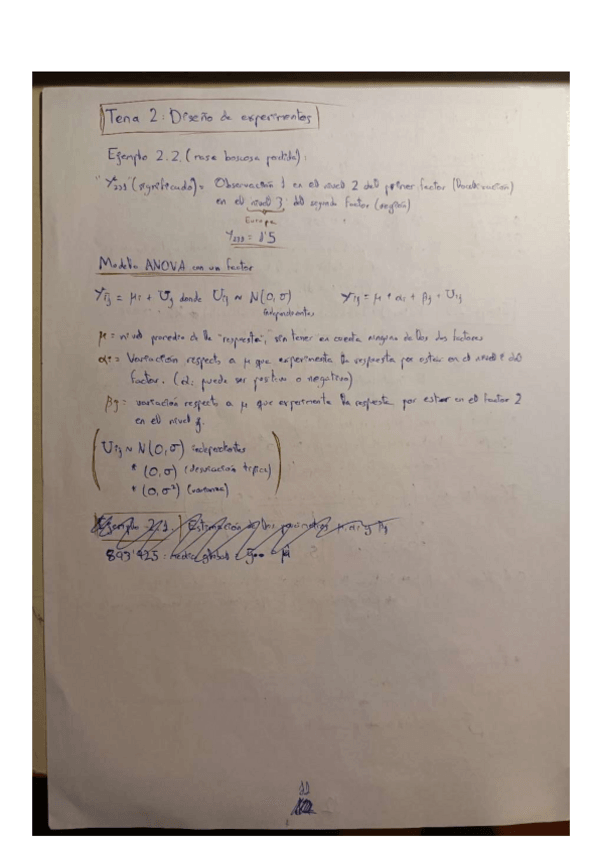 Tema 2: Diseño de experimentos
Ejemplo 2.2. (masa boscosa perdida):
(significado) = Observación 1 en el nivel 2 del primer factor
en el nivel 3 del segundo factor (región)
Europa
= 1'5
Modelo ANOVA con un factor
Yij = μi + Uij donde Uij ~ N(0,σ) Yij = μ + αi + βj + Uij
independientes
μ = nivel promedio de la "respuesta", sin tener en cuenta ninguno de los dos factores
αi = Variación respecto a μ que experimenta la respuesta por estar en el nivel i del
factor. (αi puede ser positivo o negativo)
βj = variación respecto a μ que experimenta la respuesta por estar en el factor 2
en el nivel j.
Uij ~ N(0,σ) independientes
* (0,σ) (desviación típica)
* (0,σ²) (varianza)
Ejemplo 2.1. Estimación de los parámetros μ, αi y βj
893'425: media global =
11